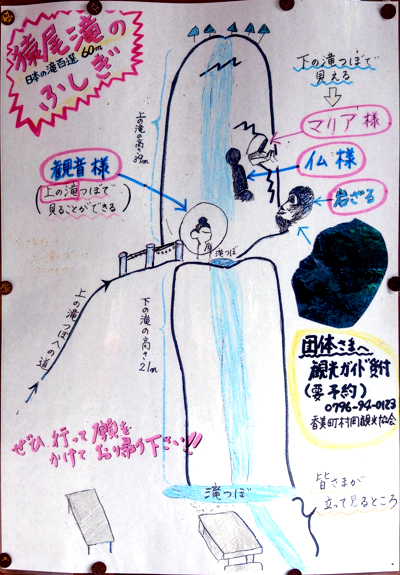 猿尾滝の
日本の滝百選 60m
ふしぎ
下の滝つぼで
見える
マリア様
仏様
岩ざる
上の滝の高さ39m
観音様
上の滝つぼで
(見ることができる)
滝つぼ
上の滝つぼへの道
下の滝の高さ21m
団体さまへ
観光ガイド受付
(要予約)
0796-94-0123
香美町村岡観光協会
ぜひ行って願を
かけてお帰り下さい!!
滝つぼ
皆さまが
立って見るところ